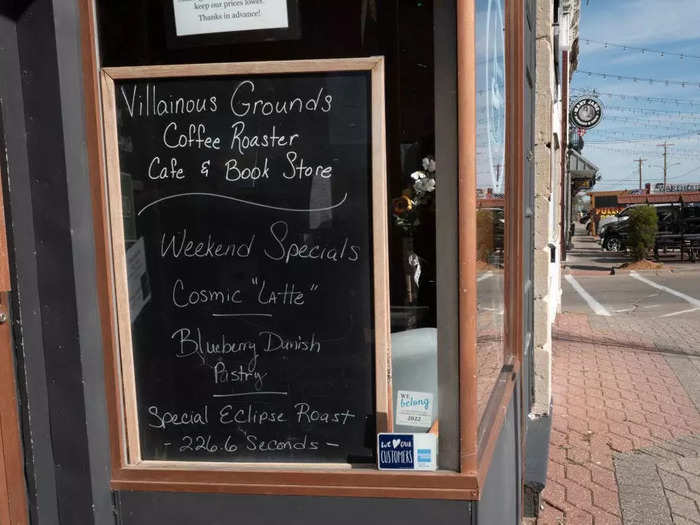 keep our prices lower.
Thanks in advance!
Villainous Grounds
Coffee Roaster
Cafe & Book Store
Weekend Specials
Cosmic "Latte"
Blueberry Danish
Pastry
Special Eclipse Roast
- 226.6 Seconds -
WE
belong
2022
WE ♥ OUR
CUSTOMERS